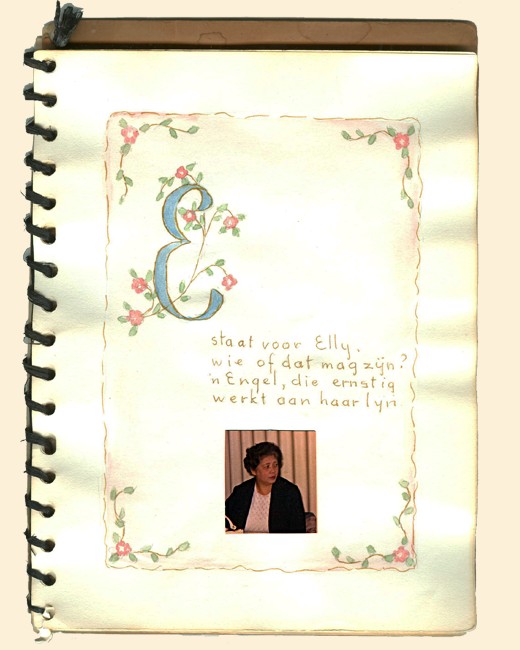 E
staat voor Elly.
wie of dat mag zijn?
'n Engel, die ernstig
werkt aan haar lyn.